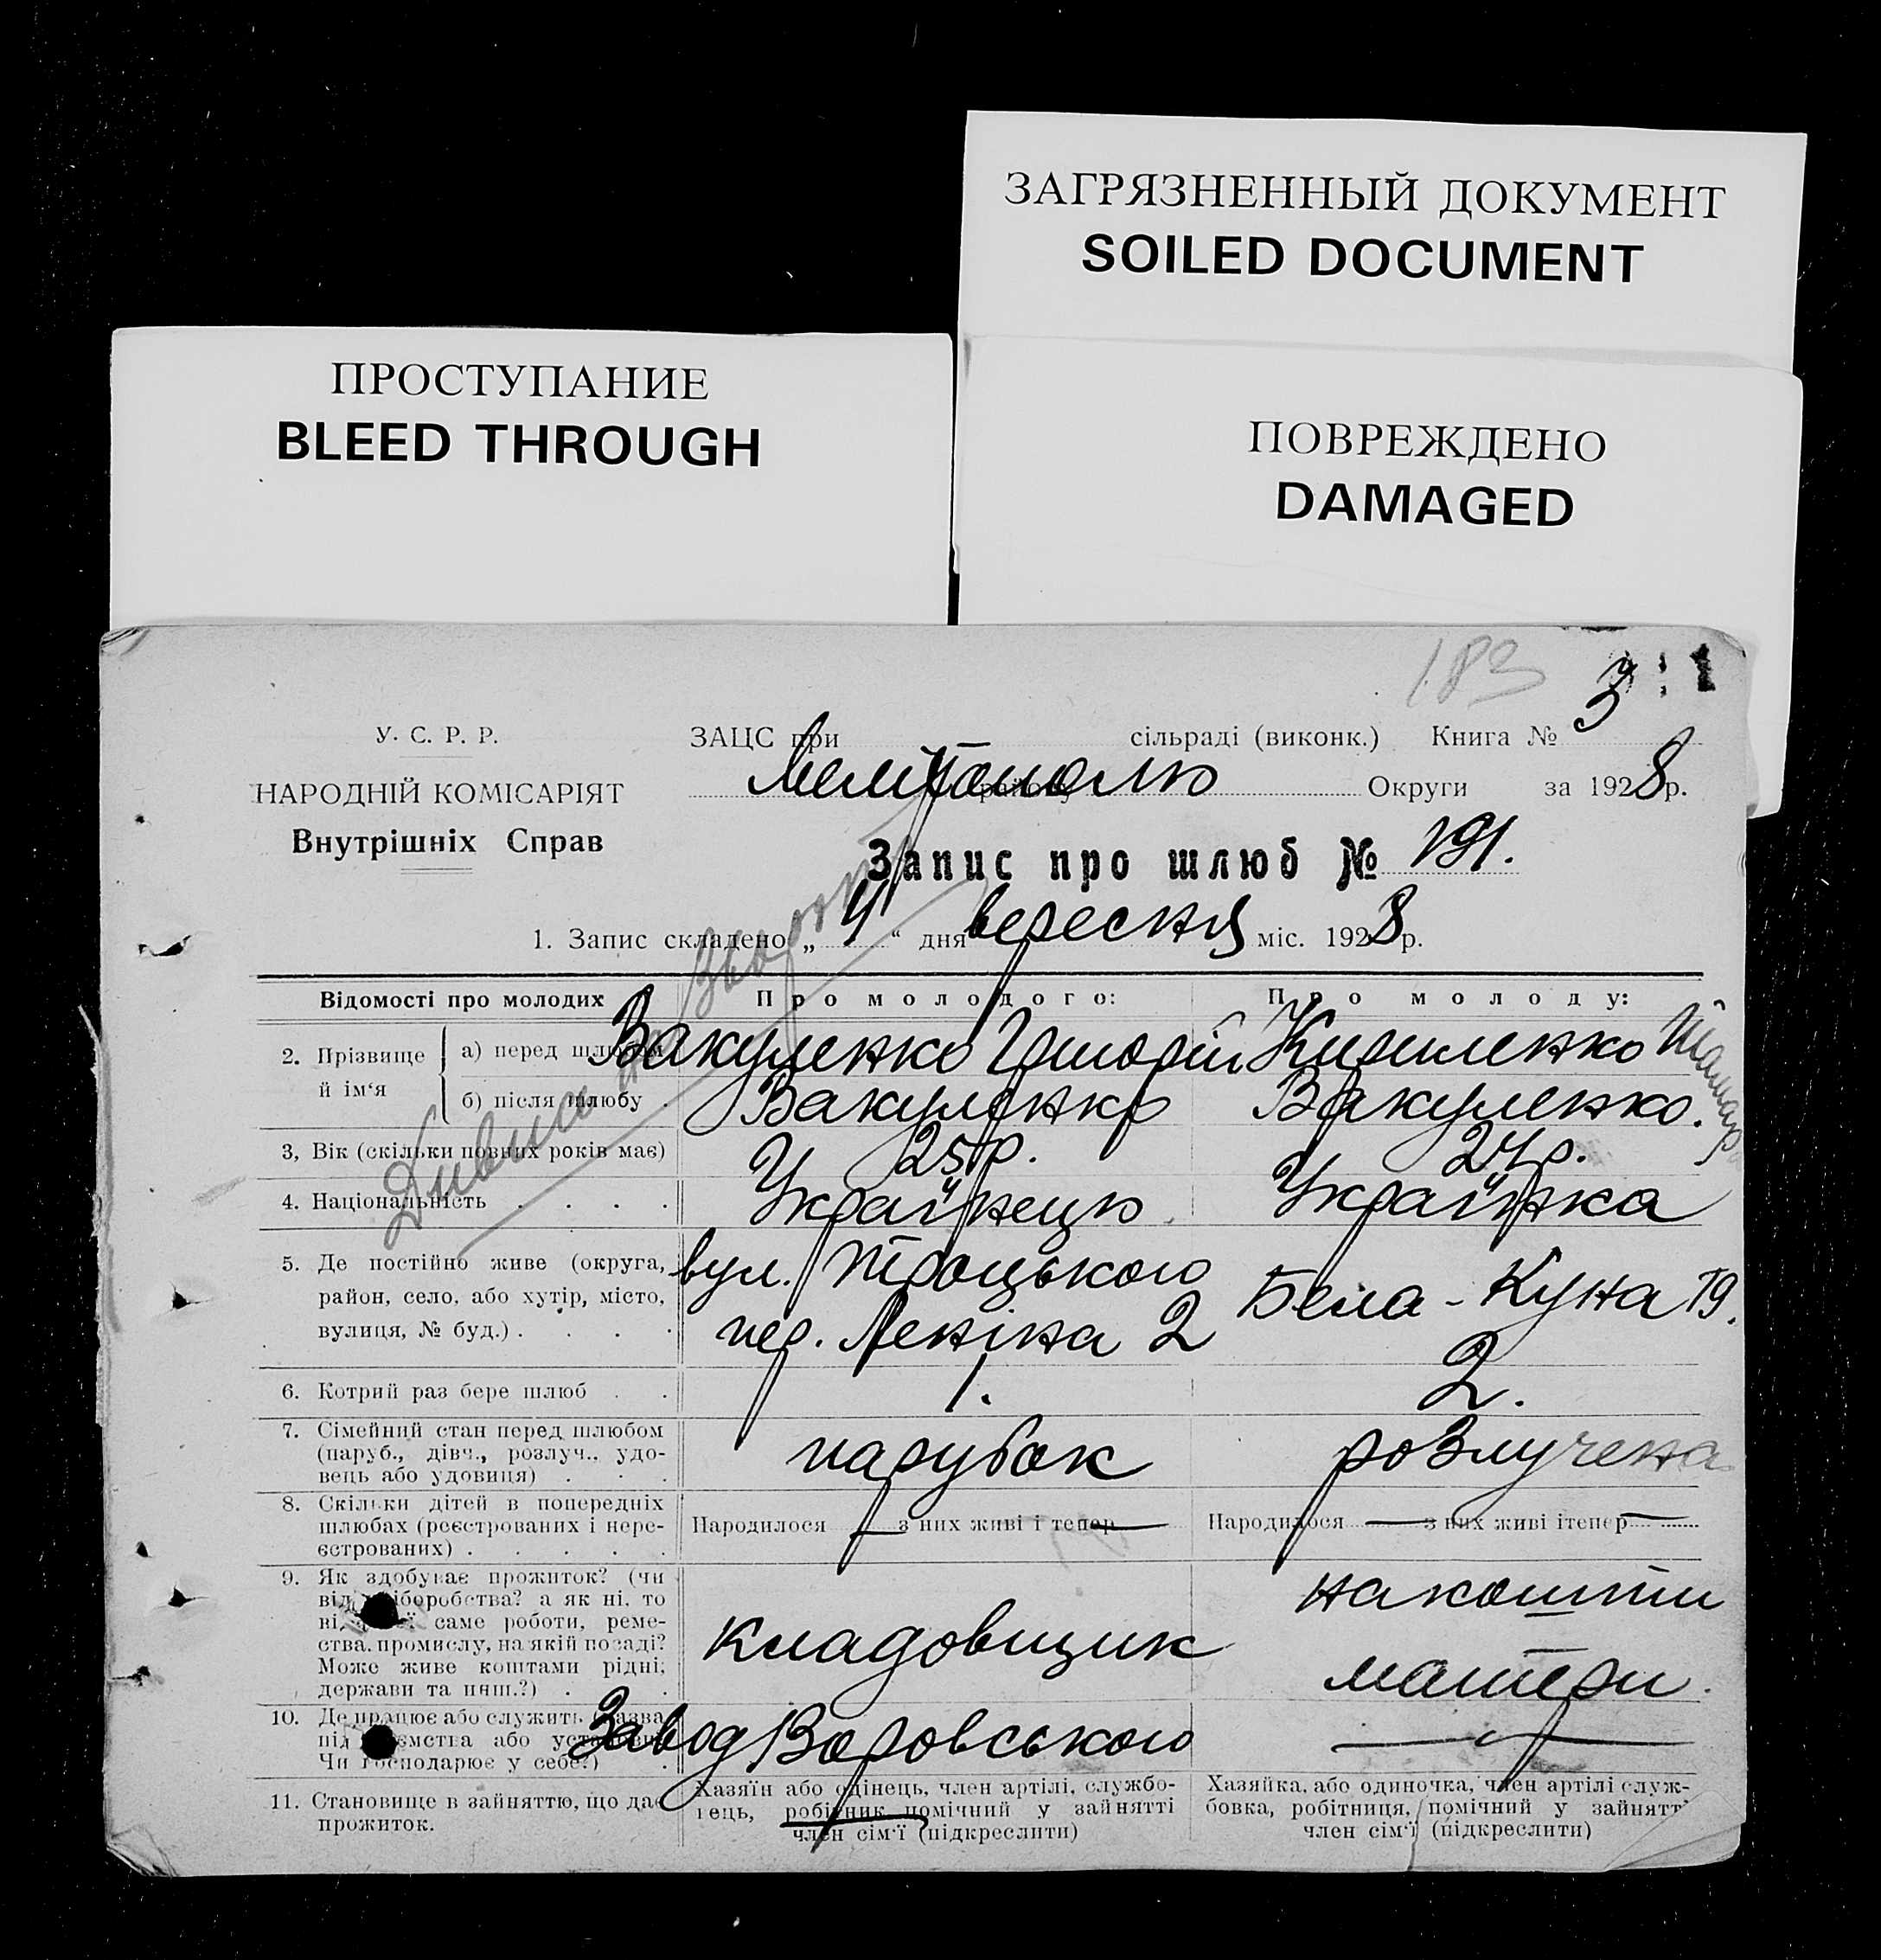 ЗАГРЯЗНЕННЫЙ ДОКУМЕНТ
SOILED DOCUMENT
ПРОСТУПАНИЕ
BLEED THROUGH
ПОВРЕЖДЕНО
DAMAGED
183
У. С. Р. Р.
НАРОДНІЙ КОМІСАРІЯТ
Внутрішніх Справ
ЗАЦС при сільраді (виконк.) Книга № 3
району Округи за 1928 р.
Запис про шлюб № 191.
1. Запис складено „4“ дня вересня міс. 1928 р.
Дивись на звороті
Відомості про молодих Про молодого: Про молоду:
2. Прізвище й ім‘я
а) перед шлюбом Вакуленко Григорій Кириленко
б) після шлюбу . Вакуленко Вакуленко.
3, Вік (скільки повних років має) 25 р. 24 р.
4. Національність . . . . Українець Українка
5. Де постійно живе (округа,
район, село, або хутір, місто,
вулиця, № буд.) . . . .
вул. Троцького
пер. Леніна 2
Бела-Куна 19.
6. Котрий раз бере шлюб . . 1. 2.
7. Сімейний стан перед шлюбом
(паруб., дівч., розлуч., удо-
вець або удовиця) . . .
парубок розлучена
8. Скільки дітей в попередніх
шлюбах (реєстрованих і нере-
єстрованих) . . . . .
Народилося — з них живі і тепер —
Народилося — з них живі ітепер —
9. Як здобуває прожиток? (чи
від хліборобства? а як ні, то
від якої саме роботи, реме-
ства, промислу, на якій посаді?
Може живе коштами рідні,
держави та инш.?) . .
кладовщик
на кошти
матери.
10. Де працює або служить (назва
підприємства або установи.
Чи господарює у себе?) .
Завод Воровського —
11. Становище в зайняттю, що дає
прожиток.
Хазяїн або одінець, член артілі, службо-
вець, робітник помічний у зайнятті
член сім‘ї (підкреслити)
Хазяйка, або одиночка, член артілі служ-
бовка, робітниця, помічний у зайнятті
член сім‘ї (підкреслити)